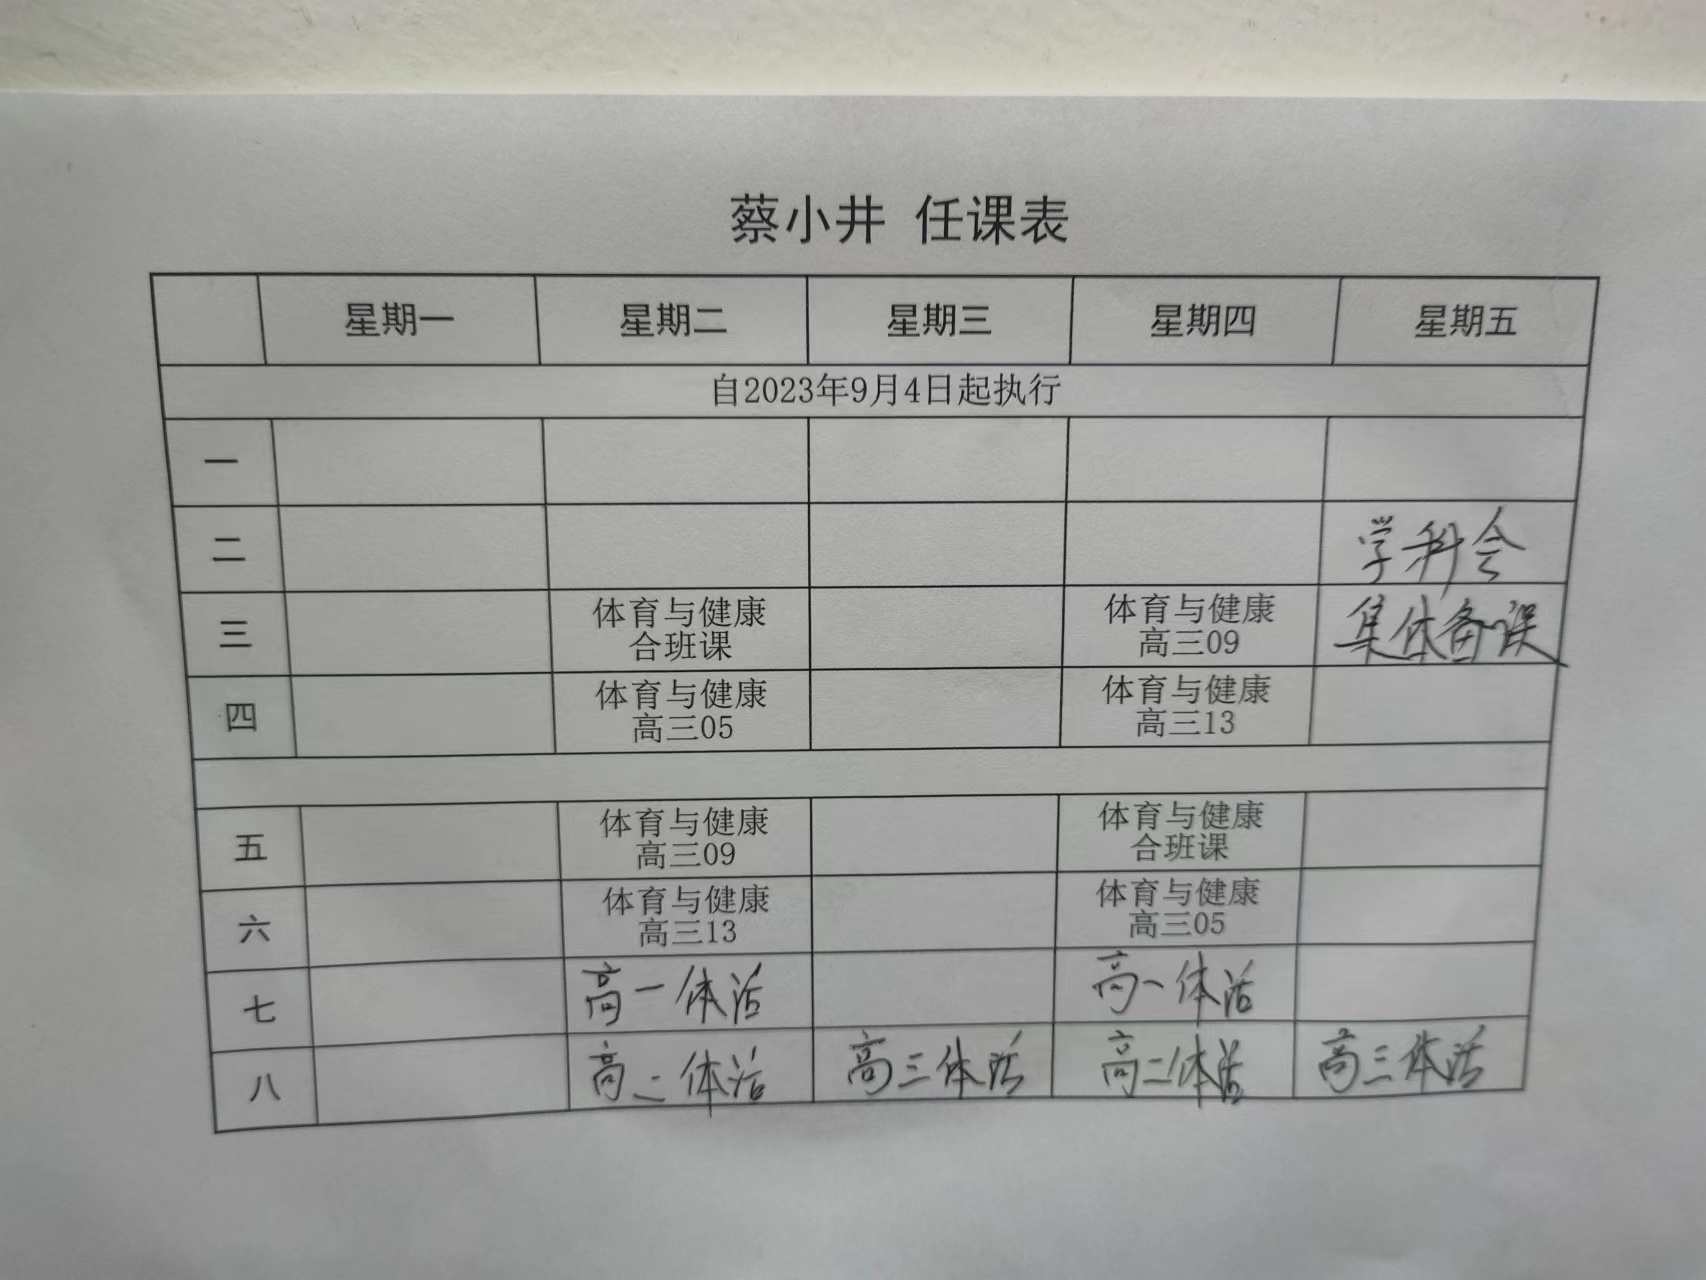 蔡小井 任课表
星期一 星期二 星期三 星期四 星期五
自2023年9月4日起执行
一
二 学科会
三 体育与健康 合班课 体育与健康 高三09 集体备课
四 体育与健康 高三05 体育与健康 高三13
五 体育与健康 高三09 体育与健康 合班课
六 体育与健康 高三13 体育与健康 高三05
七 高一体活 高一体活
八 高二体活 高三体活 高二体活 高三体活